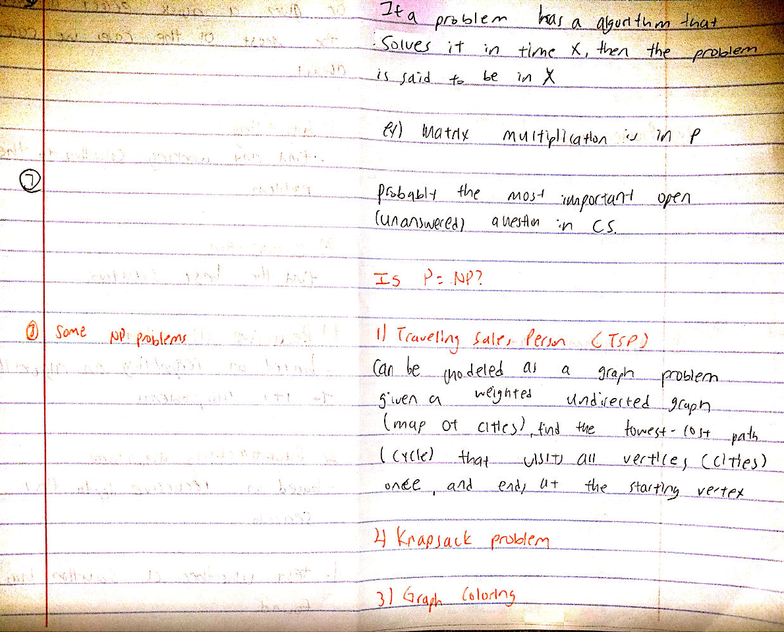 If a problem has a algorithm that
solves it in time X, then the problem
is said to be in X
ex) Matrix multiplication is in P
7
probably the most important open
(unanswered) question in CS.
Is P = NP?
8 Some NP problems
1) Traveling Sales Person (TSP)
Can be modeled as a graph problem
given a weighted undirected graph
(map of cities), find the lowest-cost path
(cycle) that visits all vertices (cities)
once, and ends at the starting vertex
2) Knapsack problem
3) Graph Coloring